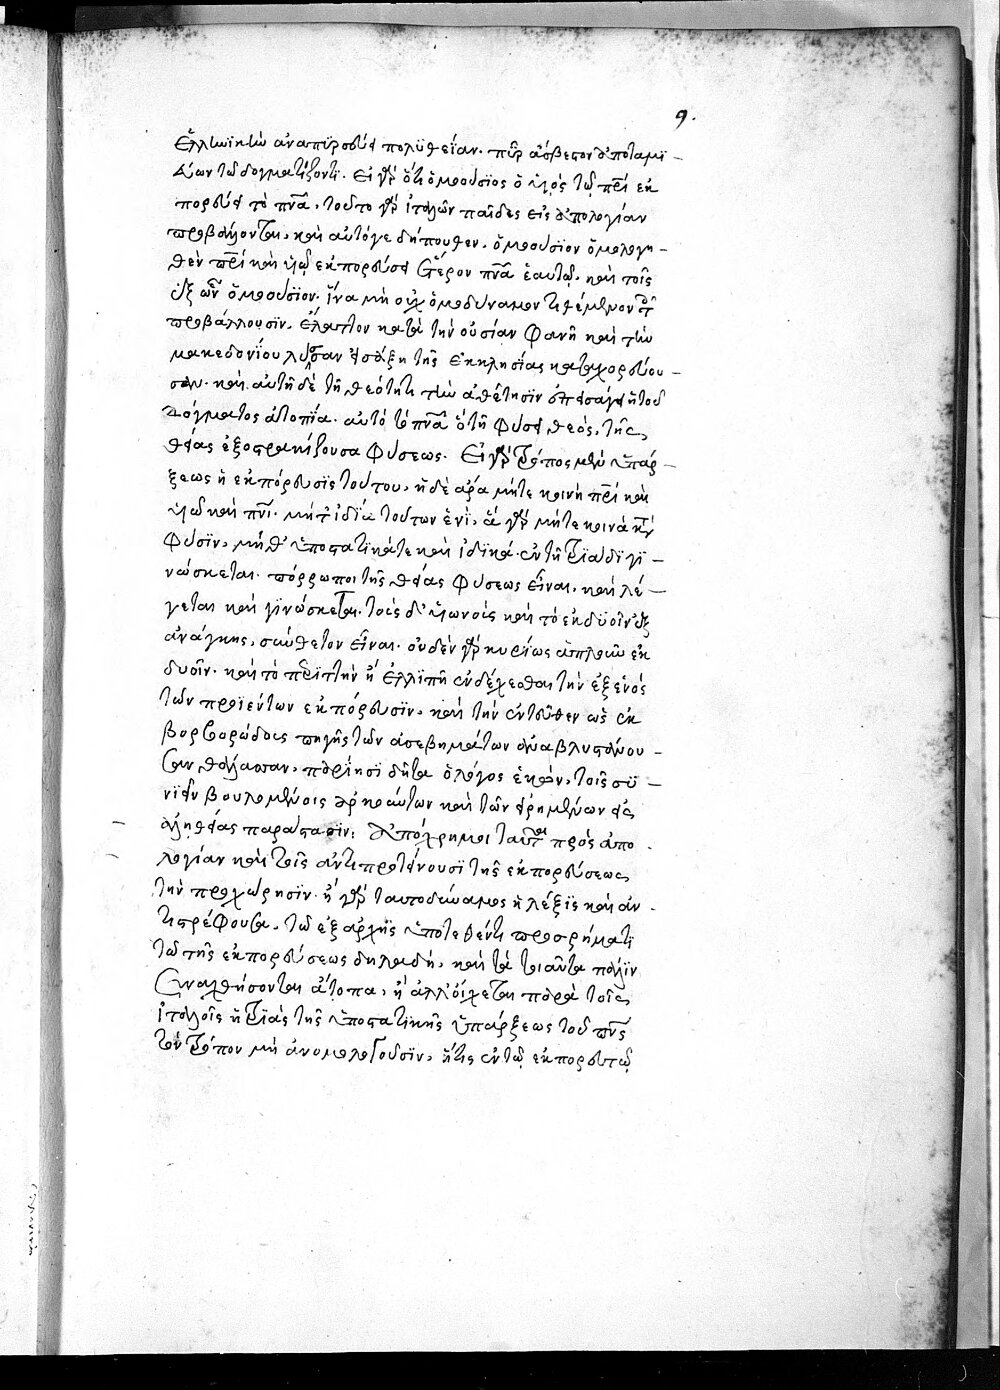 9.
ἑλληνικὴν ἀναπυρσεύει πολυθεΐαν. πῦρ ἄσβεστον ἀποταμι-
εύων τῷ δογματίζοντι. εἰ γὰρ ὅτι ὁμοούσιος ὁ υἱὸς τῷ πρὶ ἐκ
πορεύει τὸ πνα, τοῦτο γὰρ ἰταλῶν παῖδες εἰς ἀπολογίαν
προβάλλονται, καὶ αὐτόγε δήπουθεν, ὁμοούσιον ὁμολογη-
θὲν πρὶ καὶ υἱῷ ἐκπορεύσει ἕτερον πνα ἑαυτῷ, καὶ τοῖς
ἐξ ὧν ὁμοούσιον. ἵνα μὴ οὐχ ὁμοδύναμον
προβάλλουσιν, ἔλαττον κατὰ τὴν οὐσίαν φανῇ καὶ τὴν
μακεδονίου λύσσαν εἰσάξῃ τῆς ἐκκλησίας καταχορεύου-
σαν. καὶ αὐτῇ δὲ τῇ θεότητι τὴν ἀθέτησιν ἐπεισάγει ἡ τοῦ
δόγματος ἀτοπία. αὐτὸ τὸ πνα ὅ τῇ φύσει θεός, τῆς
θείας ἐξοστρακίζουσα φύσεως. εἰ γὰρ τρόπος μὲν ὑπάρ-
ξεως ἡ ἐκπόρευσις τούτου, ἡ δὲ ἄρα μήτε κοινὴ πρὶ καὶ
υἱῷ καὶ πνι, μήτ' ἰδία τούτων ἑνί, ἃ γὰρ μήτε κοινὰ κατὰ
φύσιν, μήθ' ὑποστατικά τε καὶ ἰδικά, ἐν τῇ τριάδι γι-
νώσκεται, πόρρω που τῆς θείας φύσεως εἶναι, καὶ λέ-
γεται καὶ γινώσκεται, τοῖς δ' υἱωνοῖς καὶ τὸ ἐκ δυοῖν ἐξ
ἀνάγκης, σύνθετον εἶναι. οὐδὲν γὰρ κυρίως ἁπλοῦν ἐκ
δυοῖν. καὶ τὸ περιττὴν ἢ ἐλλιπῆ ἐνδέχεσθαι τὴν ἐξ ἑνὸς
τῶν προϊέντων ἐκπόρευσιν, καὶ τὴν ἐντεῦθεν ὡς ἐκ
βορβορώδους πηγῆς τῶν ἀσεβημάτων ἀναβλυστάνου-
σαν θάλασσαν, παρίησι δῆτα ὁ λόγος ἑκών, τοῖς συ-
νιεῖν βουλομένοις ἀρκούντων καὶ τῶν εἰρημένων εἰς
ἀληθείας παράστασιν. ἀπόχρημοι ταῦτα πρὸς ἀπο
λογίαν καὶ τοῖς ἀντιπροτείνουσι τῆς ἐκπορεύσεως
τὴν προχώρησιν. ἢ γὰρ ταυτοδύναμος ἡ λέξις καὶ ἀν
τιστρέφουσα, τῷ ἐξαρχῆς ὑποτεθέντι προσρήματι
τῷ τῆς ἐκπορεύσεως δηλαδή, καὶ τὰ τοιαῦτα πάλιν
συναχθήσονται ἄτοπα, ἢ ἀλλ' οἴχεται παρὰ τοῖς
ἰταλοῖς ἡ τριὰς τῆς ὑποστατικῆς ὑπάρξεως τοῦ πνς
τὸν τρόπον μὴ ἀνομολογοῦσιν, ἥτις ἐν τῷ ἐκπορευτῷ